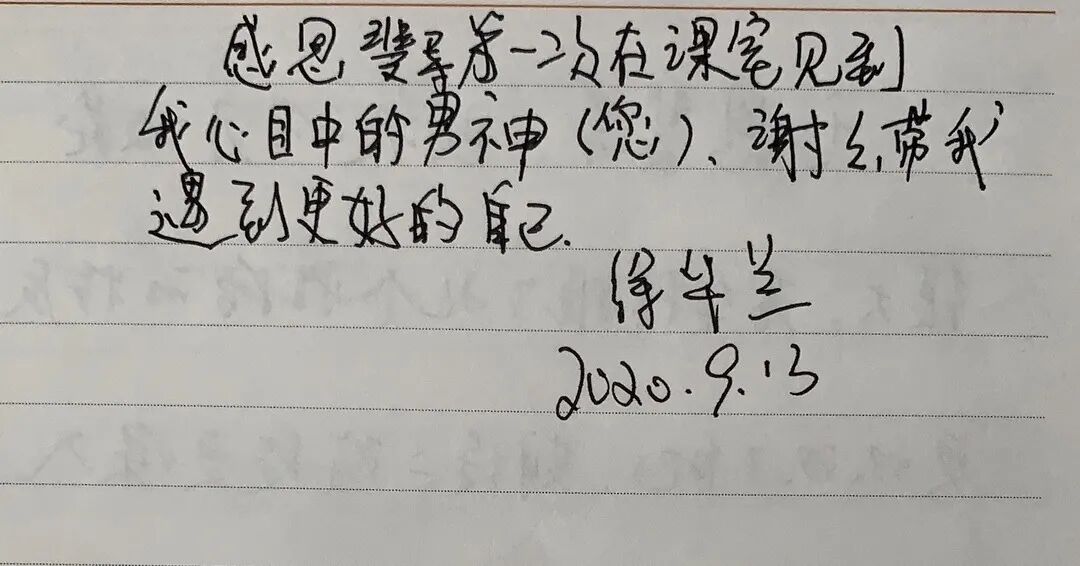 感恩斐导第一次在课室见到
我心目中的男神(您)、谢谢带我
遇到更好的自己.
徐华兰
2020.9.13